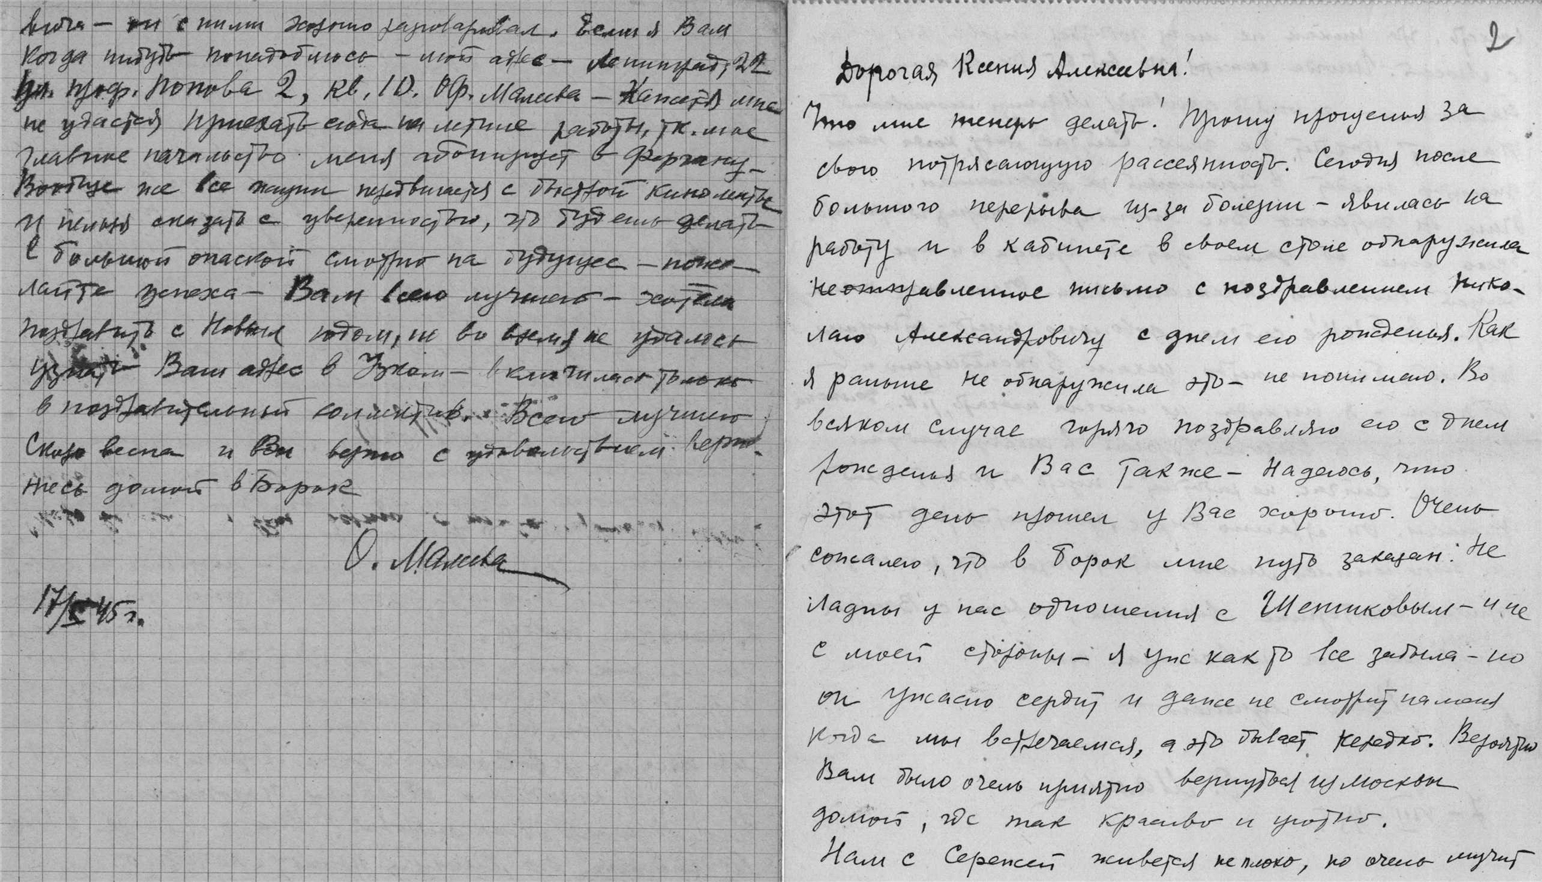 он с ними хорошо разговаривал. Если я Вам
когда нибудь понадоблюсь – мой адрес – Ленинград, 22
ул. Проф. Попова 2, кв. 10. Оф. Малеева – Кажется мне
не удастся приехать сюда на летние работы, т.к. мое
главное начальство меня в Фергану –
Вообще же все жизни с быстротой киноленты
и нельзя сказать с уверенностью, что будешь делать
С большой опаской смотрю на будущее – поже-
лайте успеха – Вам всего лучшего – хотела
поздравить с Новым годом, но во время не удалось
узнать Ваш адрес в Узком – включилась только
в поздравительный коллектив. Всего лучшего
Скоро весна и Вы верно с удовольствием верне-
тесь домой в Борок
О. Малеева
17/ 45 г.
2
Дорогая Ксения Алексеевна!
Что мне теперь делать! Прошу прощенья за
свою потрясающую рассеянность. Сегодня после
большого перерыва из-за болезни – явилась на
работу и в кабинете в своем столе обнаружила
неотправленное письмо с поздравлением Нико-
лаю Александровичу с днем его рожденья. Как
я раньше не обнаружила это – не понимаю. Во
всяком случае горячо поздравляю его с днем
рожденья и Вас также – Надеюсь, что
этот день прошел у Вас хорошо. Очень
сожалею, что в Борок мне путь заказан. Не
ладны у нас отношения с – и не
с моей стороны – я уже как то все забыла – но
он ужасно сердит и даже не смотрит на меня
когда мы встречаемся, а это бывает нередко. Вероятно
Вам было очень приятно вернуться из Москвы
домой, где так красиво и уютно.
Нам с Сережей живется неплохо, но очень мучит